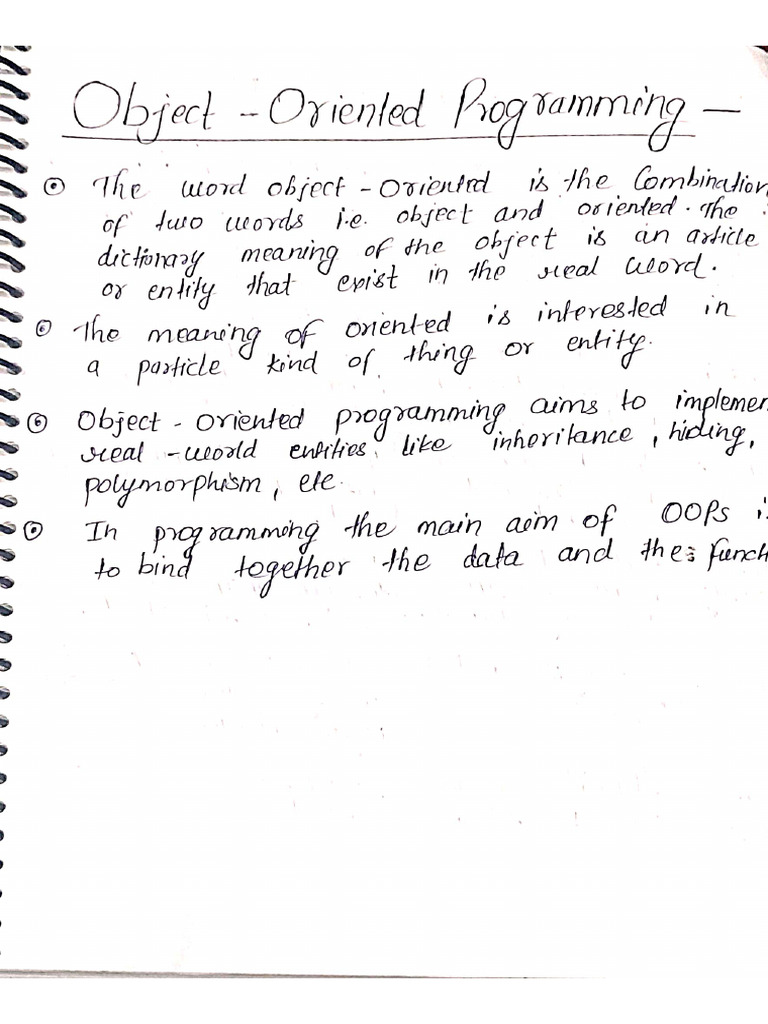 Object - Oriented Programming —
The word object - oriented is the Combination
of two words i.e. object and oriented. The
dictionary meaning of the object is an article
or entity that exist in the real word.
The meaning of oriented is interested in
a particle kind of thing or entity.
Object - oriented programming aims to implemen
real - world entities like inheritance, hiding,
polymorphism, etc.
In programming the main aim of OOPs i
to bind together the data and the funct